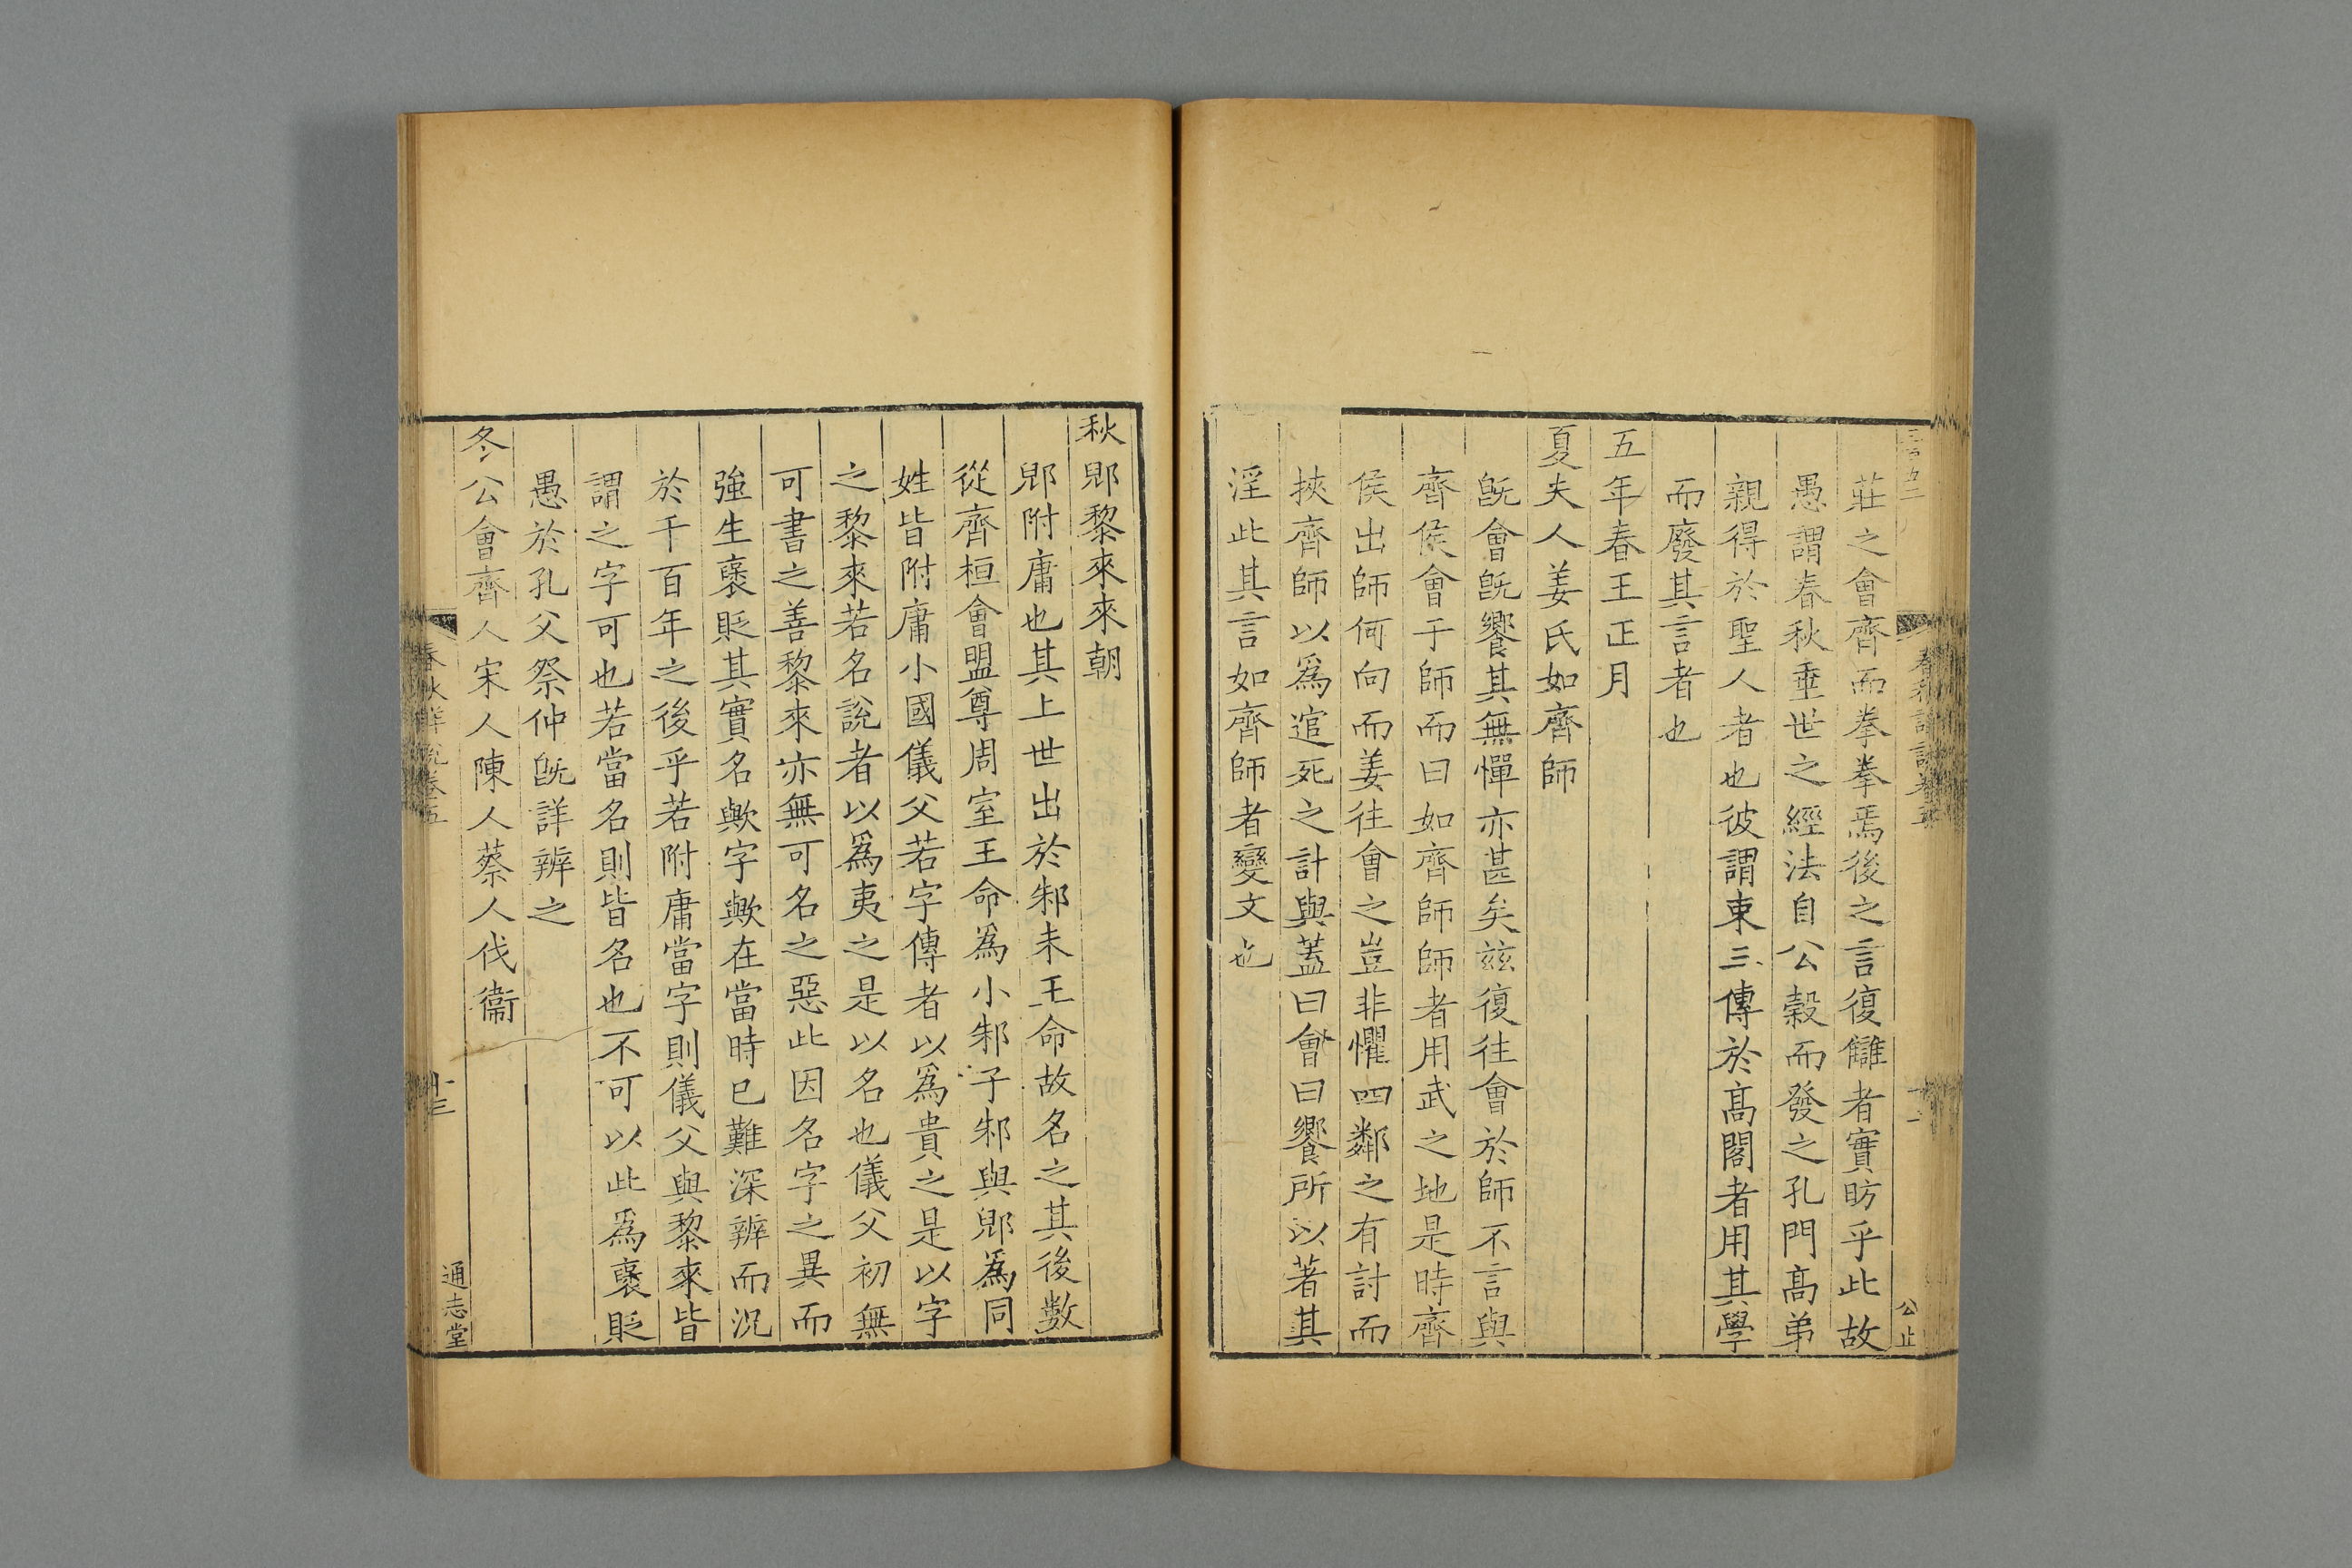 莊之會齊而拳拳焉後之言復讎者實昉乎此故
愚謂春秋垂世之經法自公穀而發之孔門高弟
親得於聖人者也彼謂束三傳於高閣者用其學
而廢其言者也
五年春王正月
夏夫人姜氏如齊師
旣會旣饗其無憚亦甚矣兹復往會於師不言與
齊侯會于師而曰如齊師師者用武之地是時齊
侯出師何向而姜往會之豈非懼四鄰之有討而
挾齊師以爲逭死之計與蓋曰會曰饗所以著其
淫此其言如齊師者變文也
公止
秋郳黎來來朝
郳附庸也其上世出於邾未王命故名之其後數
從齊桓會盟尊周室王命爲小邾子邾與郳爲同
姓皆附庸小國儀父若字傳者以爲貴之是以字
之黎來若名說者以爲夷之是以名也儀父初無
可書之善黎來亦無可名之惡此因名字之異而
強生褒貶其實名歟字歟在當時已難深辨而況
於千百年之後乎若附庸當字則儀父與黎來皆
謂之字可也若當名則皆名也不可以此爲褒貶
愚於孔父祭仲旣詳辨之
冬公會齊人宋人陳人蔡人伐衞
春秋詳說卷五
十三
通志堂